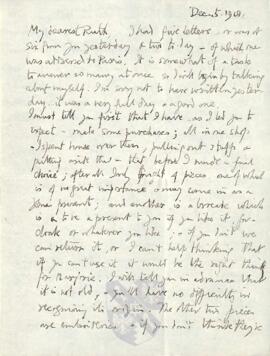 Dec. 5. 1918.
My dearest Ruth I had five letters or was it
six from you yesterday & two to-day – of which one
was addressed to Paris. It is somewhat of a task
to answer so many at once so I'll begin by talking
about myself. I'm sorry not to have written yester-
day. it was a very full day & a good one.
I must tell you first that I have, as I led you to
expect – made some purchases; all in one shop
– I spent hours over them, pulling out stuffs &
putting aside this – that before I made a final
choice; after all I only bought pieces one of which
is of no great importance & may come in as a
Xmas present; and another is a brocade which
is to be a present to you if you like it, for
cloak or whatever you like: if you don't we
can return it, or I can't help thinking that
if you can't use it it would be the right thing
for Marjorie. I will tell you in advance that
it is not old, you'll have no difficulty in
recognising its origin. The other two pieces
are embroideries & if you don't think they're